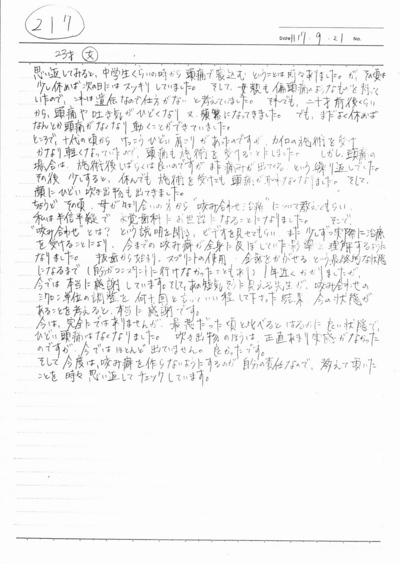 217
Date H17・9・21 No.
23才 女
思い返してみると、中学生くらいの時から頭痛で寝込むということは時々ありました。が、その頃は
少し休めば次の日にはスッキリしていました。そして、母親も偏頭痛のようなものを持って
いたので、これは遺伝なので仕方がないと考えていました。それでも、二十才前後くらい
から、頭痛や吐き気がひどくなり、又、頻繁になってきました。でも、まだなく休めば
なんとか頭痛がなくなり動くことができていました。
ところで、十代の頃から、けっこうひどい肩こりがあったのですが、カイロの施術を受け
かなり軽くなっていたので、頭痛も施術を受けることにしました。しかし頭痛の
場合は、施術後しばらくは良いのですが、また痛みが出てくるという繰り返しでした。
その後、少しすると、休んでも施術を受けても頭痛がとれなくなりました。そして、
顔にひどい吹き出物も出てきました。
ちょうどその頃、母が知り合いの方から"咬み合わせ治療"について教えてもらい、
私は半信半疑で 歯科にお世話になることになりました。そこで、
"咬み合わせとは?"という説明を聞き、ビデオを見せてもらい、また少しずつ実際に治療
を受けることにより、今までの咬み癖が全身に及ぼしていた影響を理解するように
なりました。抜歯から始まり、スプリントの使用、全歯をかぶせるという最終的な状態
になるまで(自分がコンスタントに行けなかったこともあり)1年近くかかりましたが、
今では本当に感謝しています。そして、あの短気そうに見える先生が、咬み合わせの
ミクロン単位の調整を何十回とらいい程して下さった結果、今の状態が
あることを考えると、本当に感謝です。
今は、完全にではありませんが、最悪だった頃と比べるとはるかに良い状態で、
ひどい頭痛はなくなりました。吹き出物のほうは、正直あまり実感がなかった
のですが、今ではほとんど出ていません。良かったです。
そして今度は、咬み癖を作らないようにするのが自分の責任なので、教えて頂いた
ことを時々思い返してチェックしています。